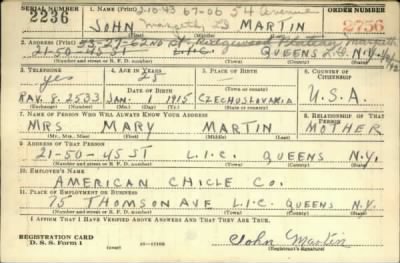 SERIAL NUMBER 1. NAME (Print) 2-10-43 67-06 54 Avenue ORDER NUMBER
2236 JOHN Maspeth L.I. MARTIN 2756
(First) (Middle) (Last)
2. ADDRESS (Print)
21-50-45 ST L.I.C. QUEENS N.Y.
(Number and street or R. F. D. number) (Town) (County) (State)
3. TELEPHONE 4. AGE IN YEARS 5. PLACE OF BIRTH 6. COUNTRY OF CITIZENSHIP
yes
DATE OF BIRTH
RAV. 8-2533 JAN. 1915 CZECHOSLOVAKIA U.S.A.
(Exchange) (Number) (Mo.) (Day) (Yr.) (State or country)
7. NAME OF PERSON WHO WILL ALWAYS KNOW YOUR ADDRESS 8. RELATIONSHIP OF THAT PERSON
MRS MARY MARTIN MOTHER
(Mr., Mrs., Miss) (First) (Middle) (Last)
9. ADDRESS OF THAT PERSON
21-50-45 ST L.I.C. QUEENS N.Y.
(Number and street or R. F. D. number) (Town) (County) (State)
10. EMPLOYER'S NAME
AMERICAN CHICLE CO.
11. PLACE OF EMPLOYMENT OR BUSINESS
75 THOMSON AVE L.I.C. QUEENS N.Y.
(Number and street or R. F. D. number) (Town) (County) (State)
I AFFIRM THAT I HAVE VERIFIED ABOVE ANSWERS AND THAT THEY ARE TRUE.
REGISTRATION CARD
D. S. S. Form 1 (over) John Martin
(Registrant's signature)